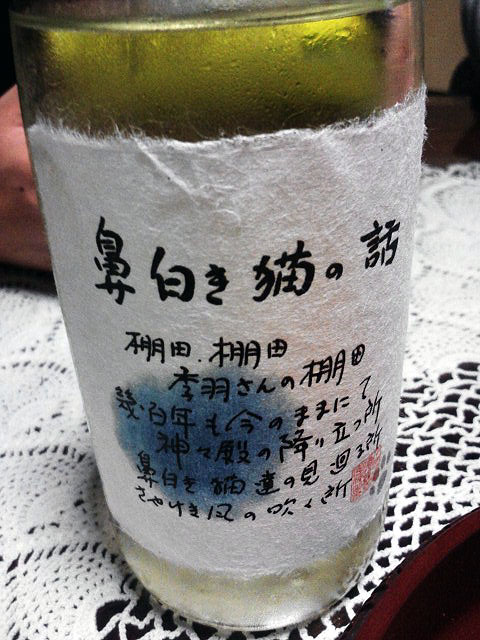 鼻白き猫の話
棚田、棚田
李羽さんの棚田
幾百年も今のままにて
神々殿の降り立つ所
鼻白き猫達の見廻る所
さやけき風の吹く所